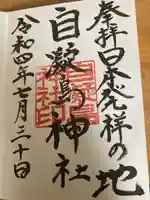 奉拝日本発祥の地
自凝島神社
令和四年七月三十日